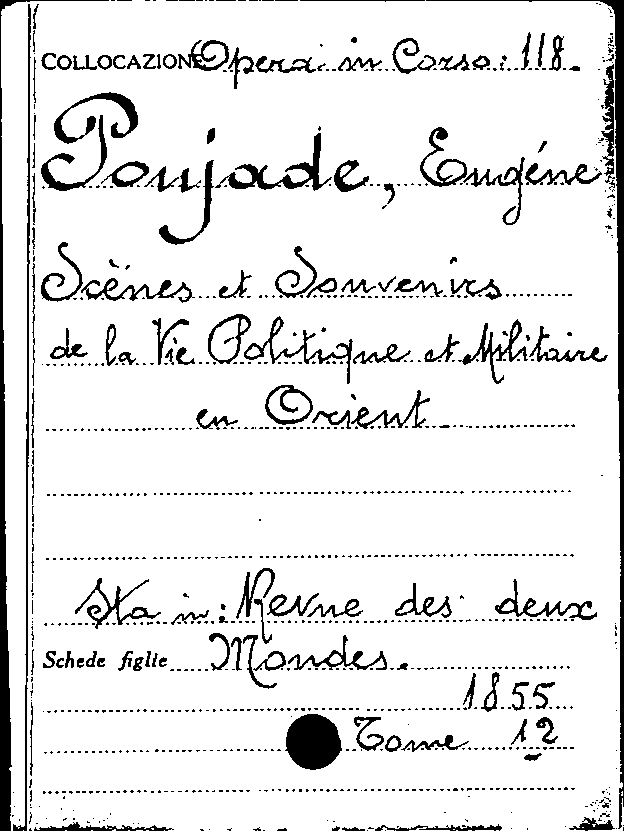 COLLOCAZIONE Opera in Corso: 118.
Poujade, Eugéne
Scènes et Souvenirs
de la Vie Politique et Militaire
en Orient
Sta in: Revue des deux
Schede figlie Mondes.
1855
Tome 12